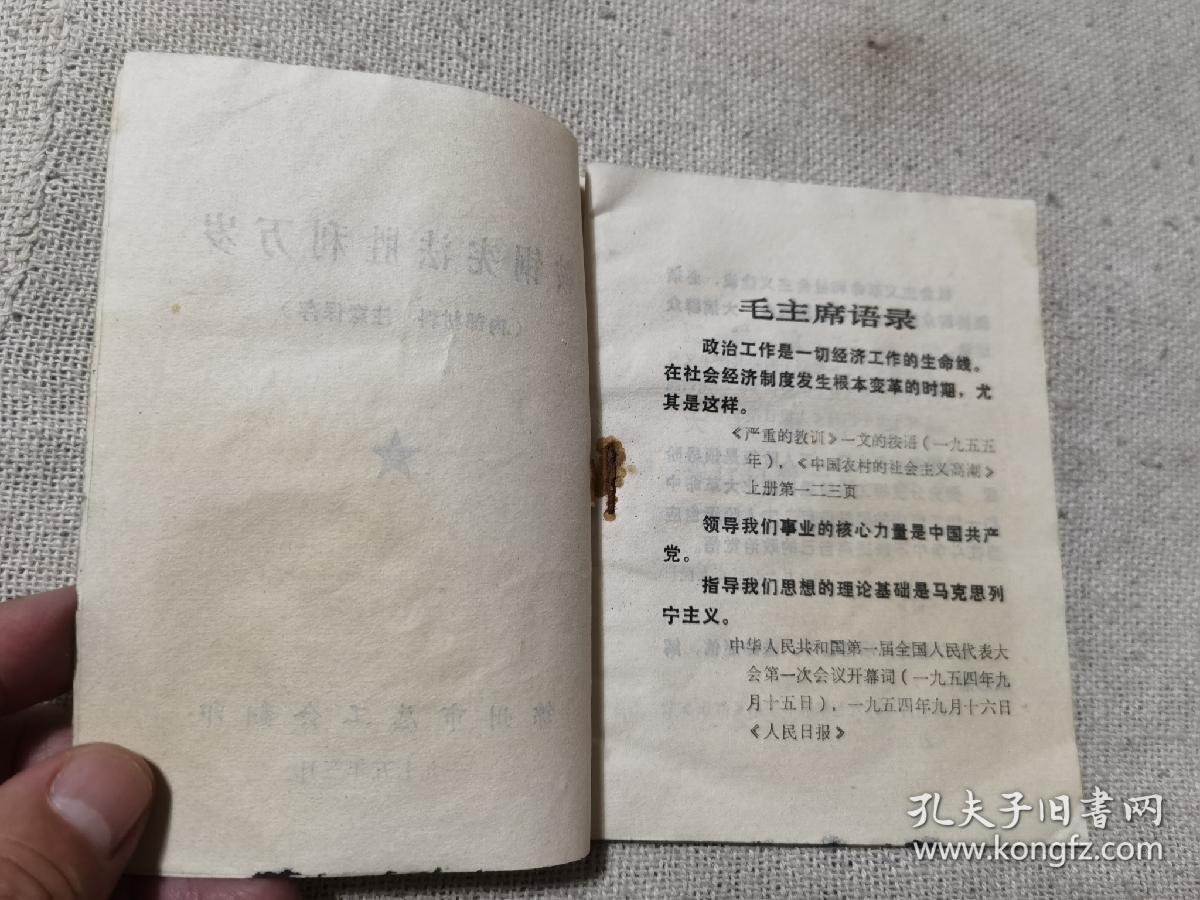 毛主席语录
政治工作是一切经济工作的生命线。
在社会经济制度发生根本变革的时期，尤
其是这样。
《严重的教训》一文的按语（一九五五
年），《中国农村的社会主义高潮》
上册第一二三页
领导我们事业的核心力量是中国共产
党。
指导我们思想的理论基础是马克思列
宁主义。
中华人民共和国第一届全国人民代表大
会第一次会议开幕词（一九五四年九
月十五日），一九五四年九月十六日
《人民日报》
孔夫子旧書网
www.kongfz.com